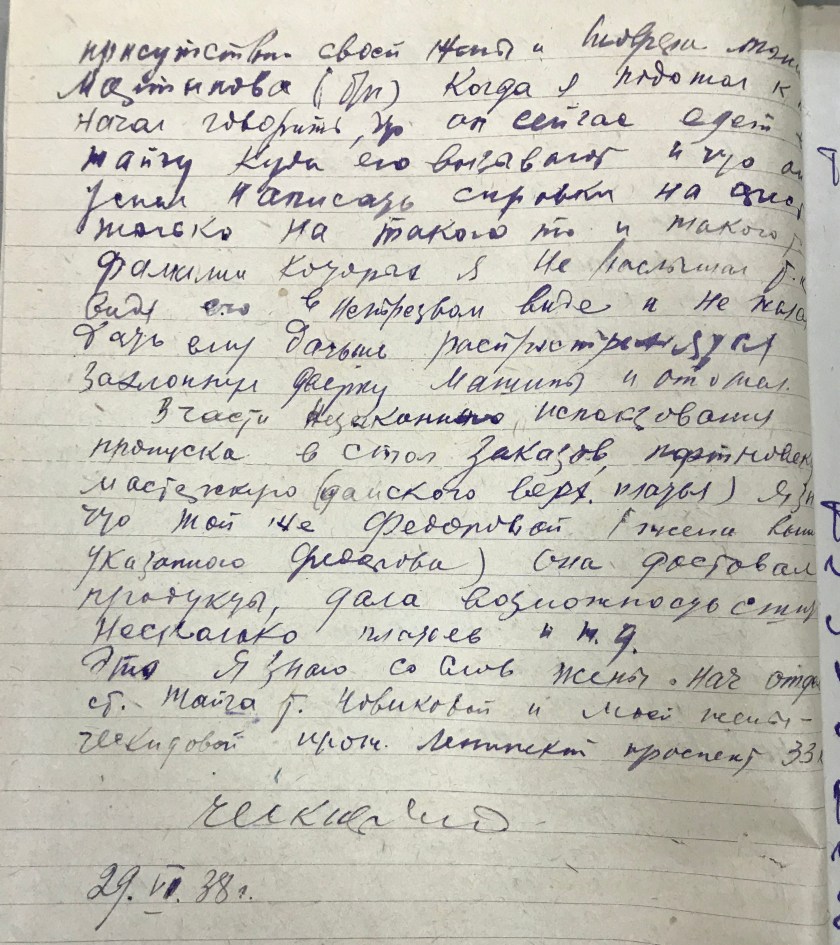 присутствии своей жены и
Мартынова ( ) Когда я подошол к
начал говорить, что он сейчас едет
тайгу куда его вызывают и что он
успел написать справки на
только на такого то и такого
фамилии которых я не послышал
Видя его в нетрезвом виде и не жела
дать ему дальше распространяться
захлопнул дверку машины и отошол.
В части незаконного использования
пропуска в стол заказов, портновск
мастерскую (дамского верх. платья) я зн
что той же Федоровой (жена выш
указанного Федорова) она доставал
продукты, дала возможность сшить
несколько платьев и т. д.
Это я знаю со слов жены нач отде
ст. Тайга т. Новиковой и моей жены -
Чекидовой прож. Ленинский проспект 33
29. VI. 38 г.